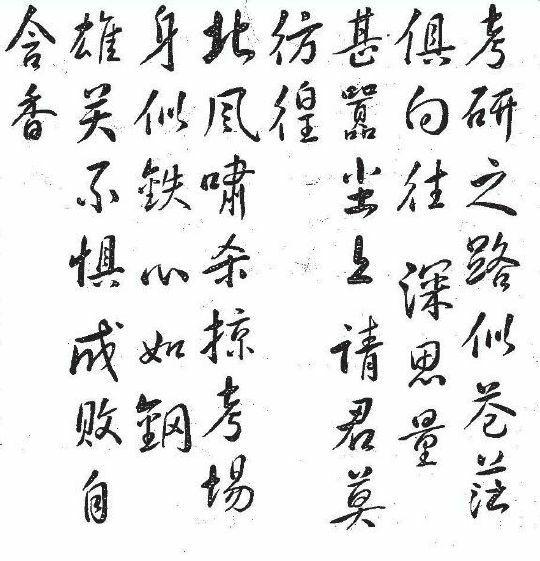 考研之路似苍茫
俱向往 深思量
甚嚣尘上請君莫
彷徨
北风嘯杀掠考場
身似鉄心如鋼
雄英不惧成败自
含香